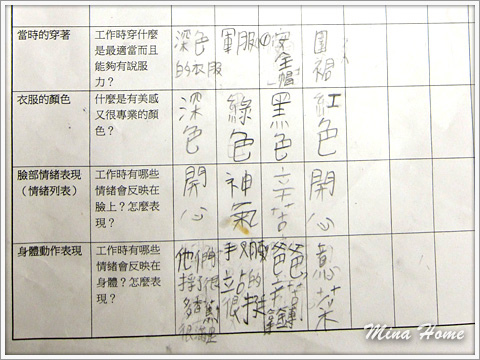 當時的穿著
工作時穿什麼
是最適當而且
能夠有說服
力？
深色
的衣服
軍服
安全帽
圍裙
衣服的顏色
什麼是有美感
又很專業的顏
色？
深色
綠色
黑色
紅色
臉部情緒表現
（情緒列表）
工作時有哪些
情緒會反映在
臉上？怎麼表
現？
開心
神氣
辛苦
開心
身體動作表現
工作時有哪些
情緒會反映在
身體？怎麼表
現？
他們
採了很
多
很滿足
手叉腰
站的
很挺
爸爸
辛苦
Mina Home